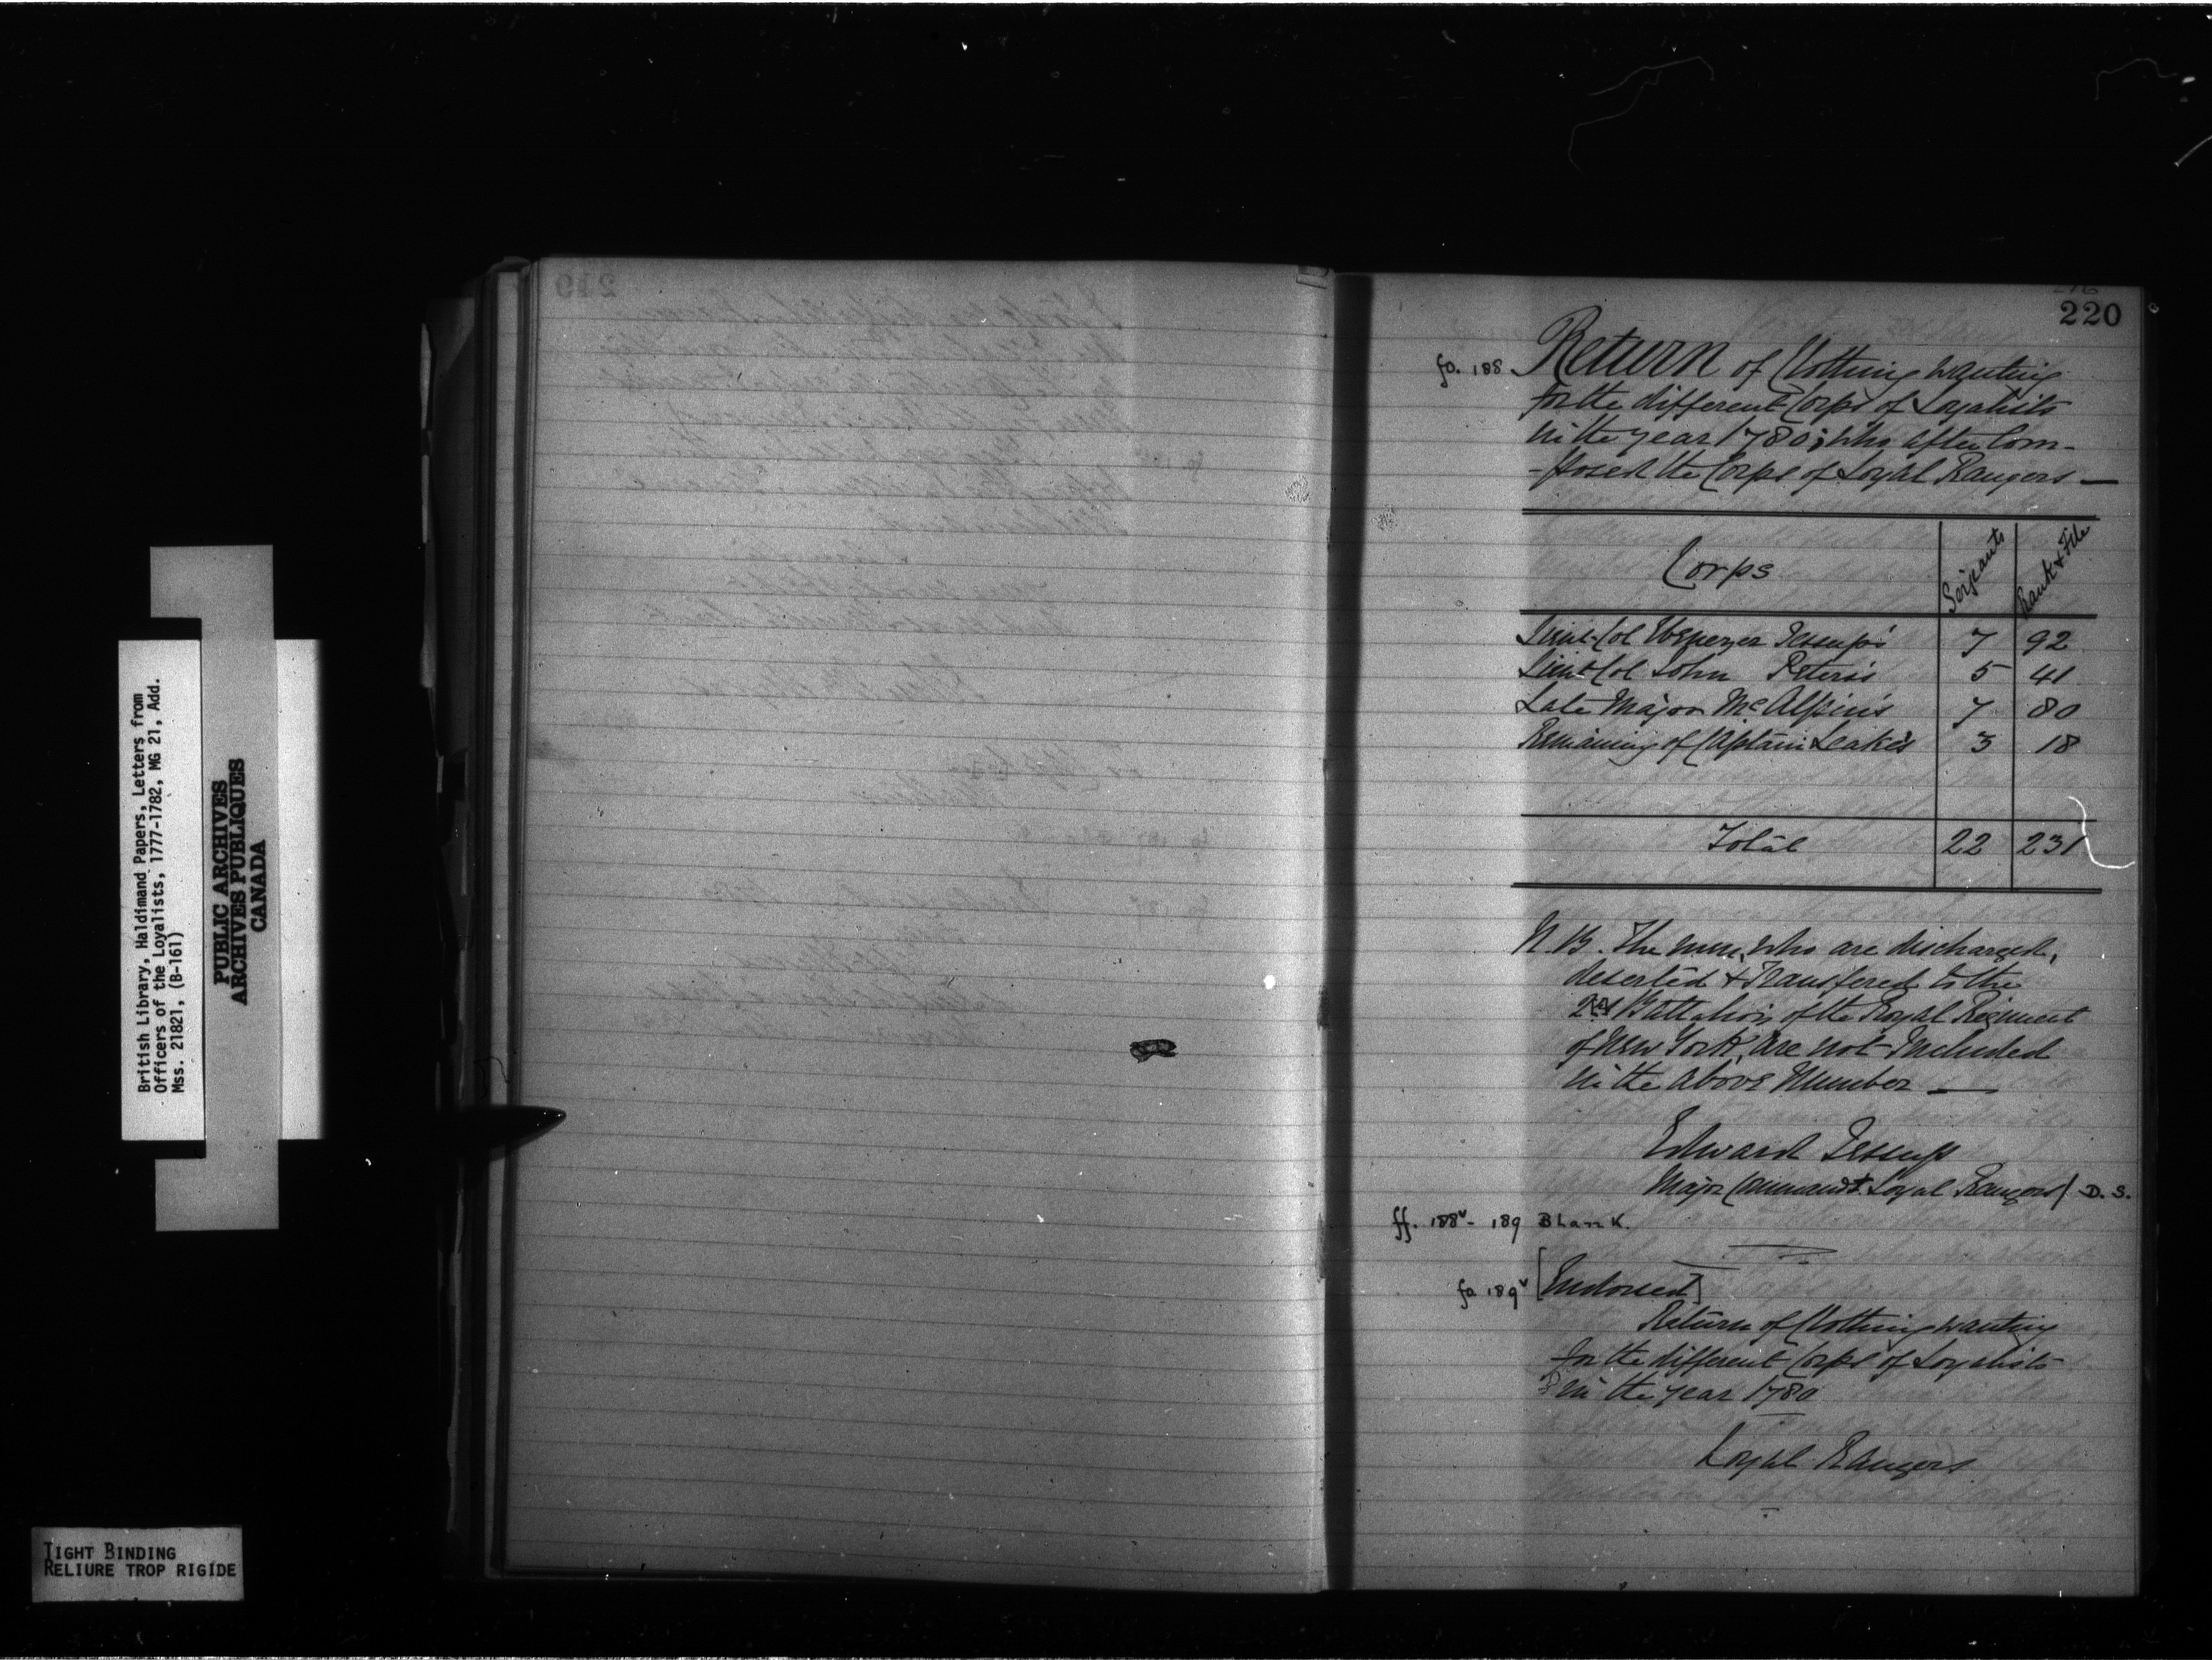 British Library, Haldimand Papers, Letters from
Officers of the Loyalists, 1777-1782, MG 21, Add.
Mss. 21821, (B-161)
PUBLIC ARCHIVES
ARCHIVES PUBLIQUES
CANADA
TIGHT BINDING
RELIURE TROP RIGIDE
219
220
fo. 188 Return of Clothing wanting
for the different Corps of Loyalists
in the year 1780; who after Com-
-posed the Corps of Loyal Rangers —
Corps Serjeants Rank & File
Lieut-Col Ebenezer Jessup's 7 92
Lieut-Col John Peters's 5 41
Late Major McAlpin's 7 80
Remaining of Captain Leake's 3 18
Total 22 231
N.B. The men, who are discharged,
deserted & Transfered to the
2nd Battalion of the Royal Regiment
of New York, are not Included
in the above Number —
Edward Jessup
Major Commandt. Loyal Rangers / D. S.
ff. 188v - 189 Blank.
fo 189v [Endorsed]
Return of Clothing wanting
for the different Corps of Loyalists
in the year 1780
Loyal Rangers